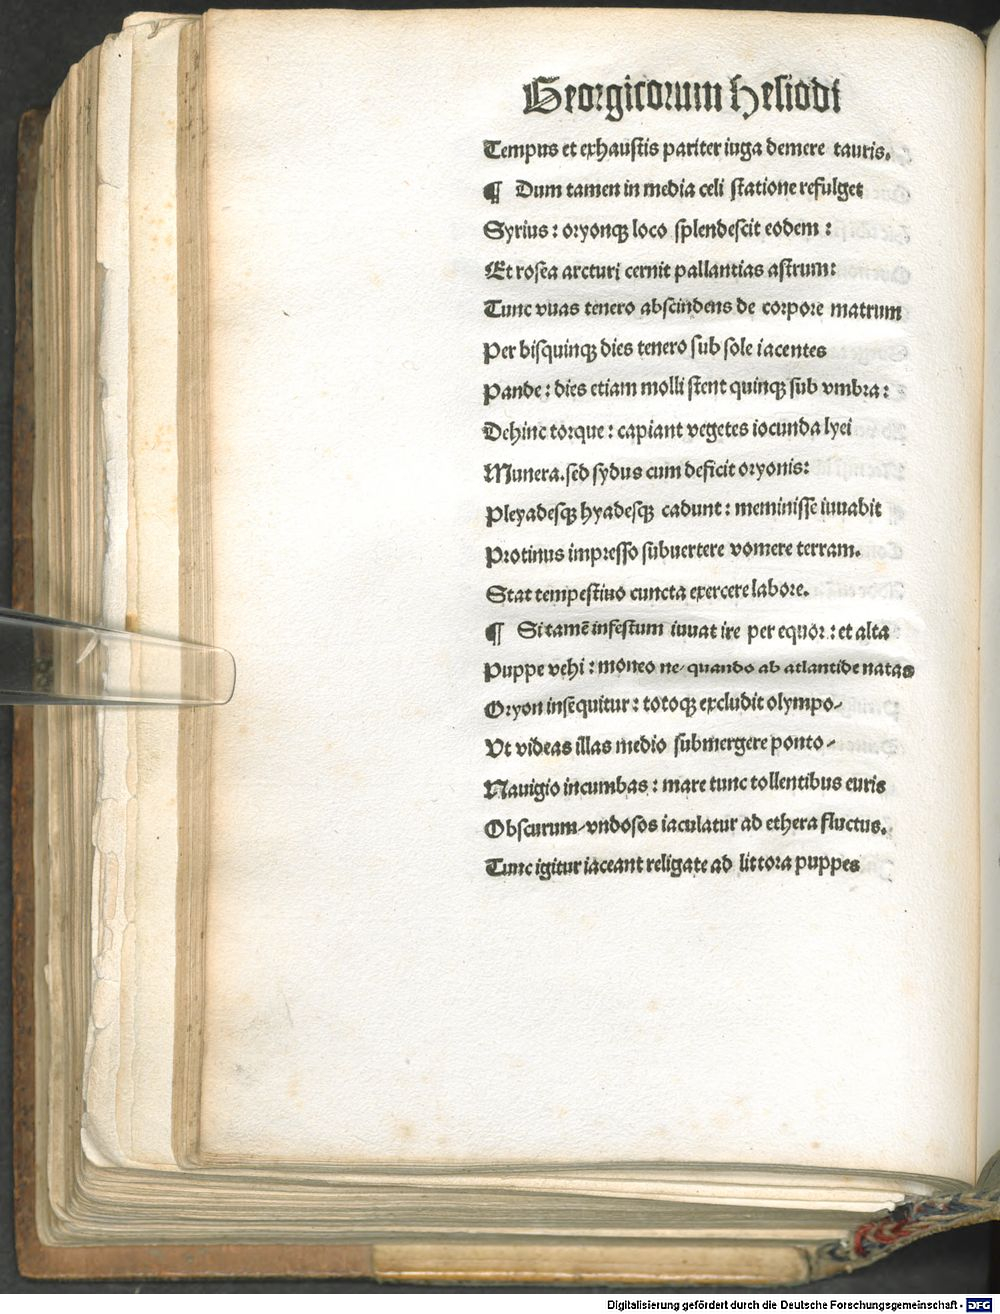 Georgicorum Hesiodi
Tempus et exhaustis pariter iuga demere tauris.
¶ Dum tamen in media celi statione refulget
Syrius : oryonqꝫ loco splendescit eodem :
Et rosea arcturi cernit pallantias astrum:
Tunc vuas tenero abscindens de corpore matrum
Per bisquinqꝫ dies tenero sub sole iacentes
Pande : dies etiam molli stent quinqꝫ sub vmbra :
Dehinc torque : capiant vegetes iocunda lyei
Munera. sed sydus cum deficit oryonis:
Pleyadesqꝫ hyadesqꝫ cadunt : meminisse iuuabit
Protinus impresso subuertere vomere terram.
Stat tempestiuo cuncta exercere labore.
¶ Si tamē infestum iuuat ire per equor : et alta
Puppe vehi : moneo ne/ quando ab atlantide natas
Oryon insequitur : totoqꝫ excludit olympo/
Vt videas illas medio submergere ponto/
Nauigio incumbas : mare tunc tollentibus euris
Obscurum/ vndosos iaculatur ad ethera fluctus.
Tunc igitur iaceant religate ad littora puppes
Digitalisierung gefördert durch die Deutsche Forschungsgemeinschaft - DFG